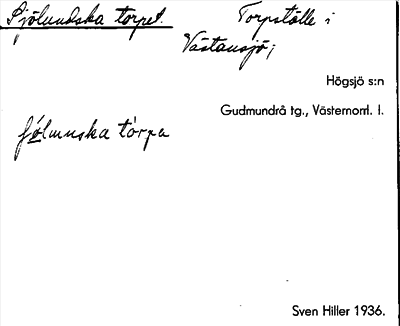 Sjölundska torpet. Torpställe i
Västansjö;
Högsjö s:n
Gudmundrå tg., Västernorrl. l.
fó̲lunska tòrpa
Sven Hiller 1936.